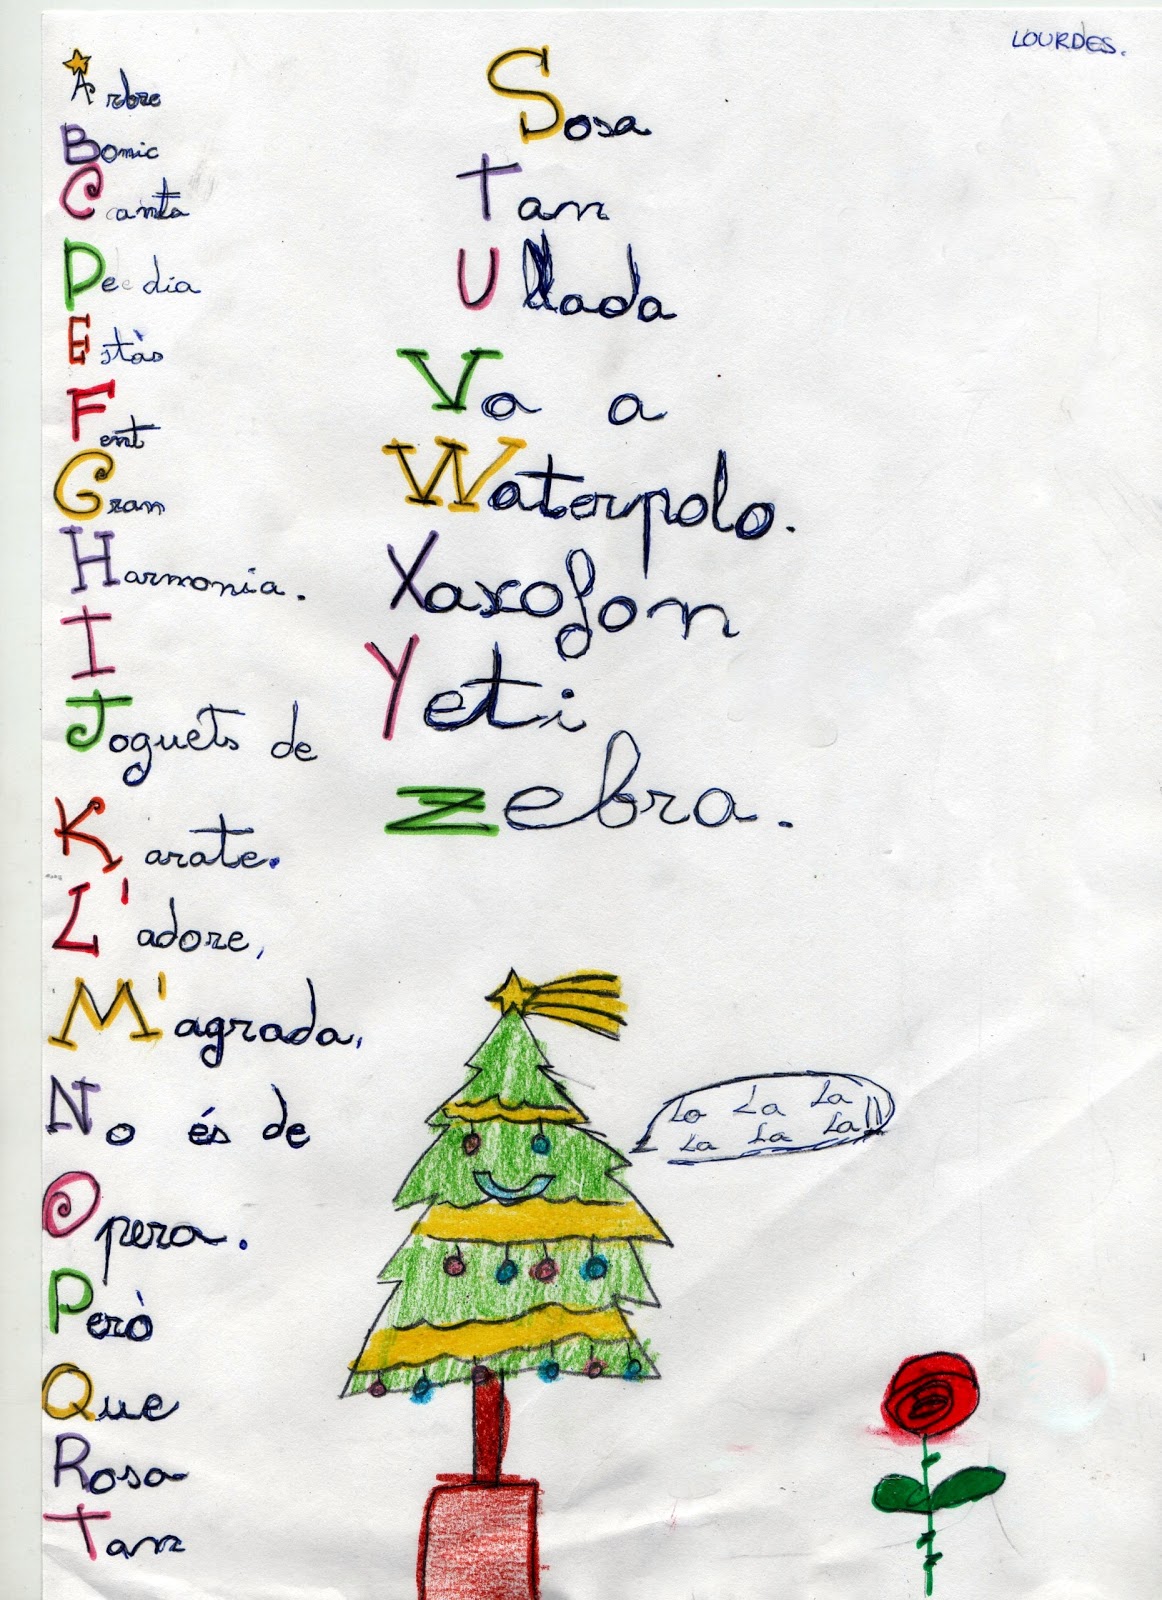 LOURDES.
Arbre
Bonic
Canta
De dia
Estàs
Fent
Gran
Harmonia.
I
Joguets de
Karate.
L'adore,
M'agrada,
No és de
Opera.
Però
Que
Rosa
Tan
Sosa
Tan
Ullada
Va a
Waterpolo.
Xaxofon
Yeti
Zebra.
La La La
La La La!!